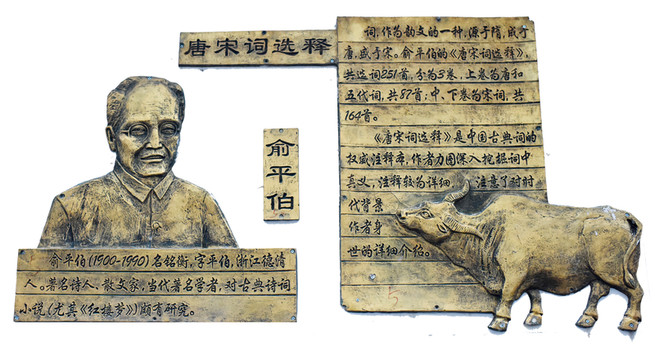 唐宋词选释
俞平伯
俞平伯(1900-1990)名铭衡,字平伯,浙江德清
人。著名诗人、散文家,当代著名学者,对古典诗词
小说(尤其《红楼梦》)颇有研究。
词,作为韵文的一种,源于隋,成于
唐,盛于宋。俞平伯的《唐宋词选释》,
共选词251首,分为3卷,上卷为唐和
五代词,共87首,中、下卷为宋词,共
164首。
《唐宋词选释》是中国古典词的
权威注释本,作者力图深入挖掘词中
真义,注释较为详细,注意了对时
代背景
作者身
世的详细介绍。